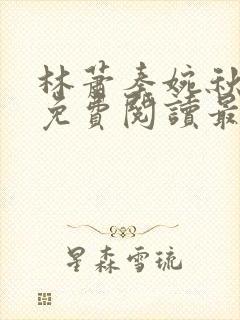 林蕭秦婉秋
免費閱讀最
星森雪琉